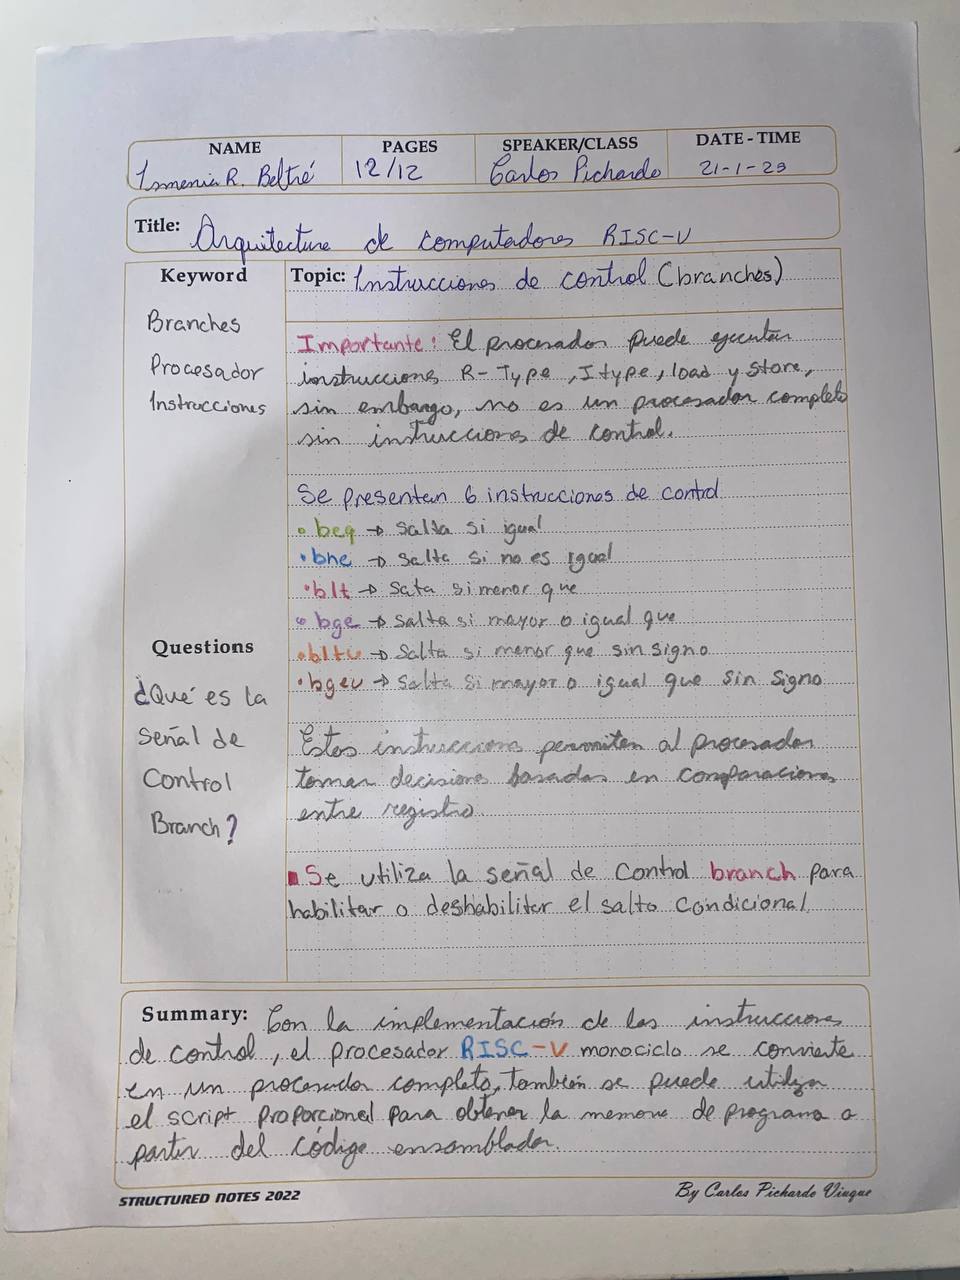 NAME PAGES SPEAKER/CLASS DATE - TIME
Ismenia R. Beltré 12/12 Carlos Pichardo 21-1-23
Title: Arquitectura de computadores RISC-V
Keyword
Branches
Procesador
Instrucciones
Topic: Instrucciones de control (branches)
Importante: El procesador puede ejecutar
instrucciones R-Type, I type, load y store,
sin embargo, no es un procesador completo
sin instrucciones de control.
Se presentan 6 instrucciones de control
• beq → Salta si igual
• bne → Salta si no es igual
• blt → Sata si menor que
• bge → Salta si mayor o igual que
• bltu → Salta si menor que sin signo
• bgeu → Salta si mayor o igual que sin signo
Questions
¿Qué es la
Señal de
Control
Branch?
Estas instrucciones permiten al procesador
tomar decisiones basadas en comparaciones
entre registro.
Se utiliza la señal de control branch para
habilitar o deshabilitar el salto condicional.
Summary: Con la implementación de las instrucciones
de control, el procesador RISC-V monociclo se convierte
en un procesador completo, también se puede utilizar
el script proporcional para obtener la memoria de programa a
partir del código ensamblador.
STRUCTURED NOTES 2022 By Carlos Pichardo Viuque